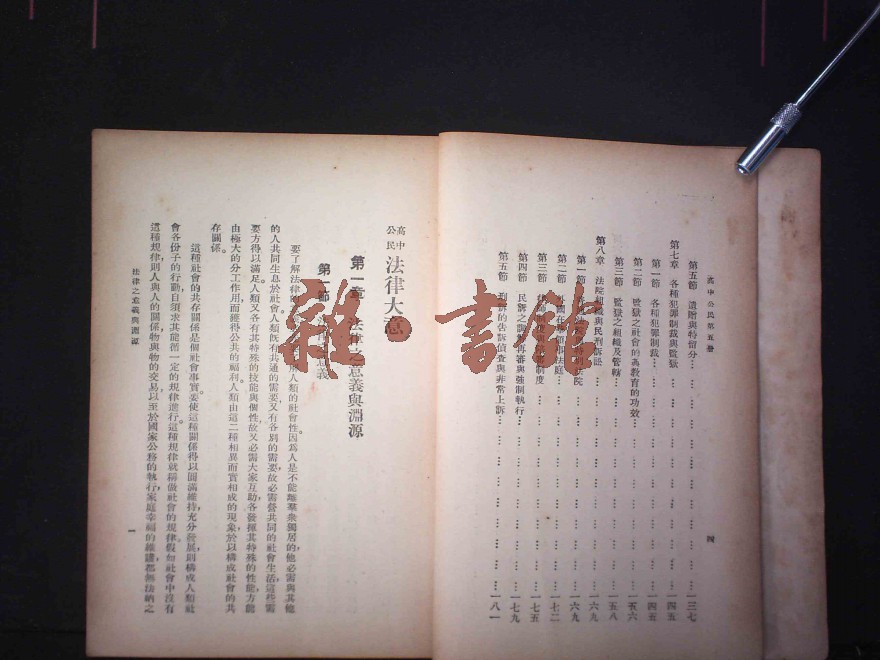 高中公民第五冊
第五節 遺贈與特留分 一三七
第七章 各種犯罪制裁與監獄 一四五
第一節 各種犯罪制裁 一四五
第二節 監獄之社會的為教育的功效 一五六
第三節 監獄之組織及管轄 一五八
第八章 法院組織與民刑訴訟 一六九
第一節 院 一六九
第二節 法庭 一七二
第三節 制度 一七五
第四節 民訴之 再審與強制執行 一七九
第五節 刑訴的告訴偵查與非常上訴 一八一
四
高中公民 法律大意
第一章 法律之意義與淵源
第一節 意義
要了解法律 人類的社會性。因為人是不能離羣衆獨居的,他必需與其他
的人共同生息於社會。人類既有共通的需要,又有各別的需要,故必需營共同的社會生活,這些需
要方得以滿足。人類又各有其特殊的技能與個性,故又必需大家互助,各發揮其特殊的性能,方能
由極大的分工作用,而獲得公共的福利。人類由這二種相異而實相成的現象,於以構成社會的共
存關係。
這種社會的共存關係是個社會事實。要使這種關係得以圓滿維持,充分發展,則構成人類社
會各份子的行動,自須求其能循一定的規律進行。這種規律就稱做社會的規律。假如社會中沒有
這種規律,則人與人的關係,物與物的交易,以至於國家公務的執行,家庭幸福的維護,都無法納之
法律之意義與淵源
一
雜·書館